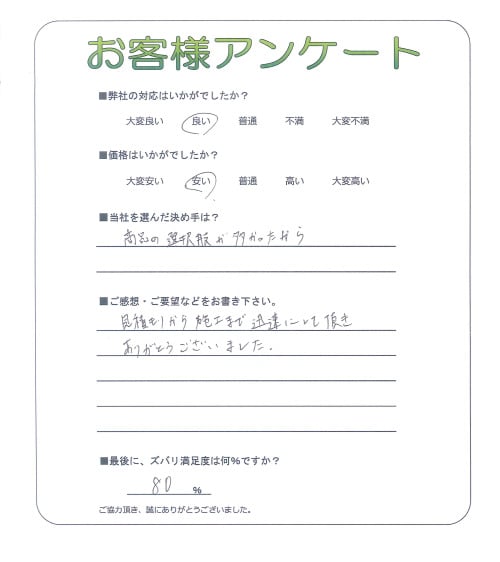 お客様アンケート
■弊社の対応はいかがでしたか？
大変良い 良い 普通 不満 大変不満
■価格はいかがでしたか？
大変安い 安い 普通 高い 大変高い
■当社を選んだ決め手は？
商品の選択肢が多かったから
■ご感想・ご要望などをお書き下さい。
見積もりから施工まで迅速にして頂き
ありがとうございました.
■最後に、ズバリ満足度は何%ですか？
80 %
ご協力頂き、誠にありがとうございました。